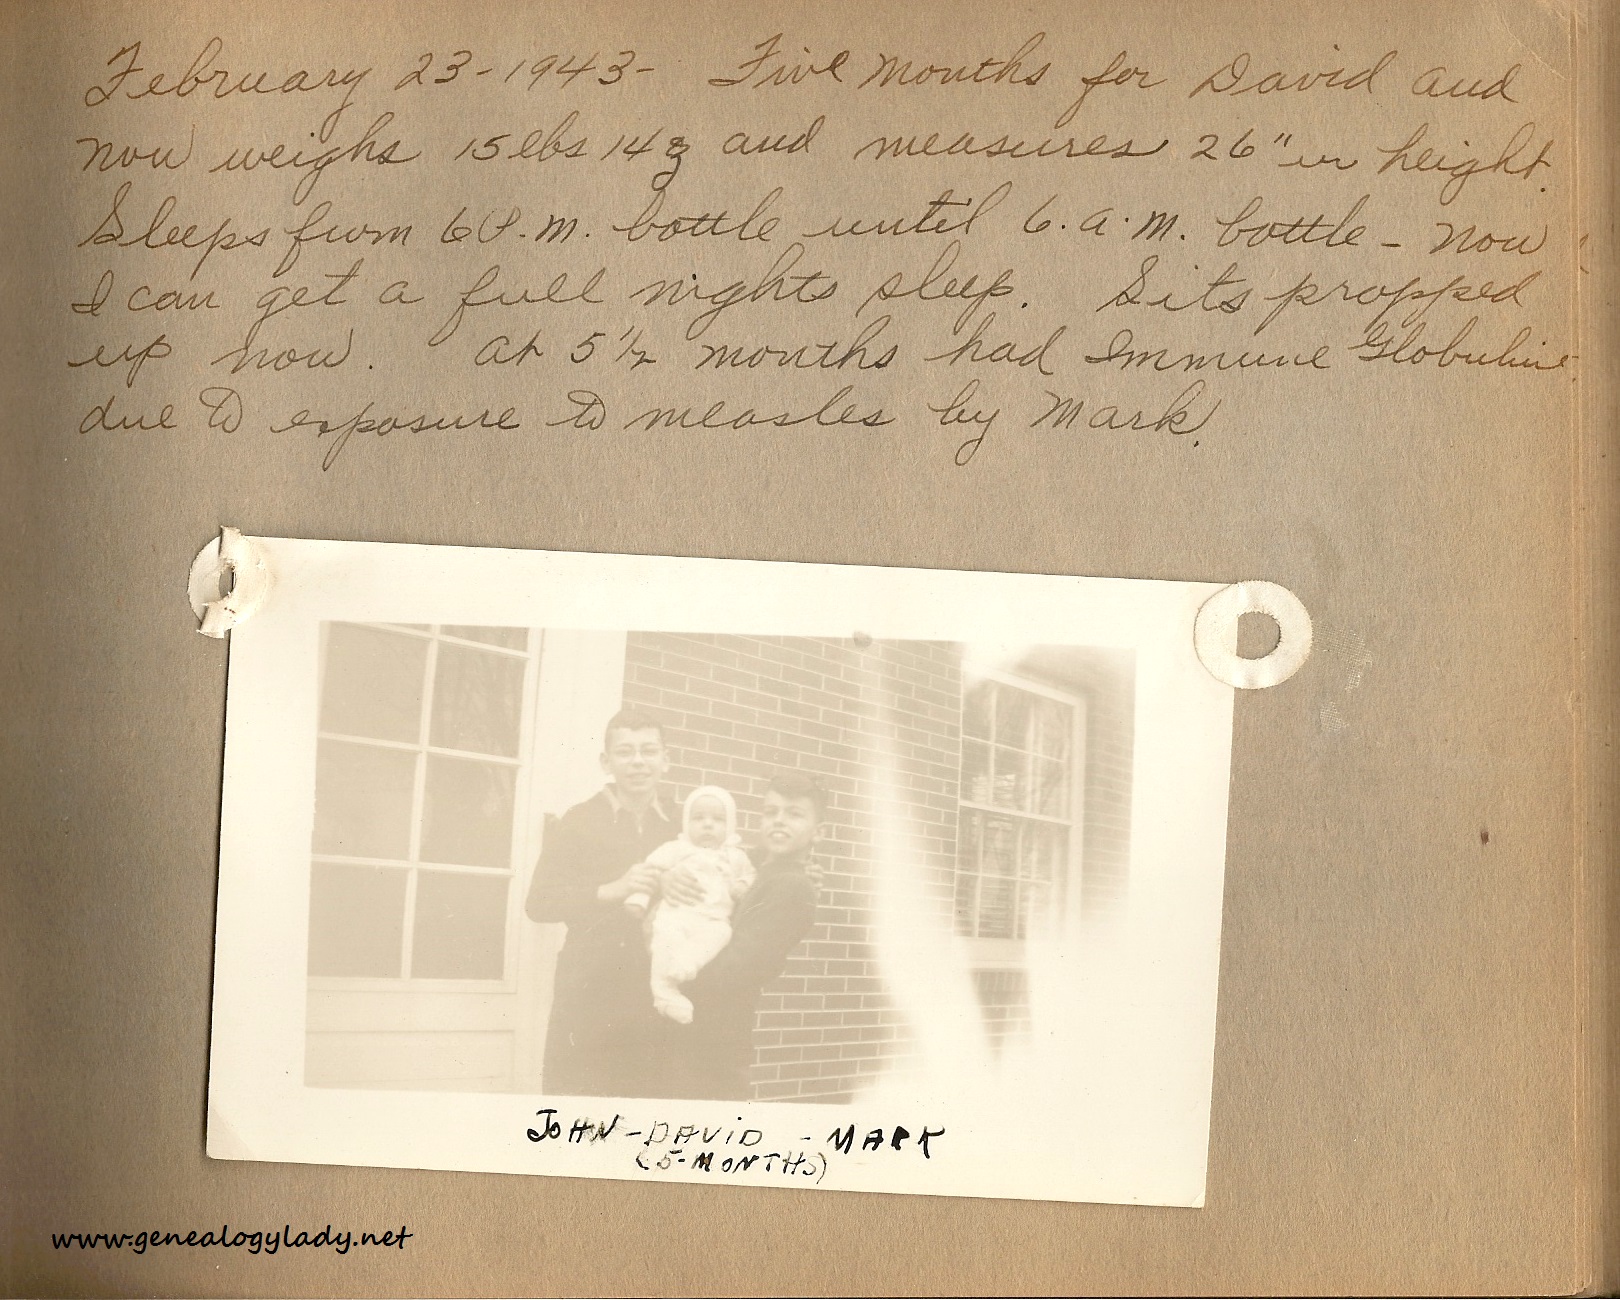 February 23-1943- Five months for David and
now weighs 15 lbs 14 oz and measures 26" in height.
Sleeps from 6 P.M. bottle until 6. a.m. bottle - now
I can get a full nights sleep. Sits propped
up now. At 5 1/2 months had Immune Globuline
due to exposure to measles by Mark.
JOHN-DAVID - MARK
(5-MONTHS)
www.genealogylady.net